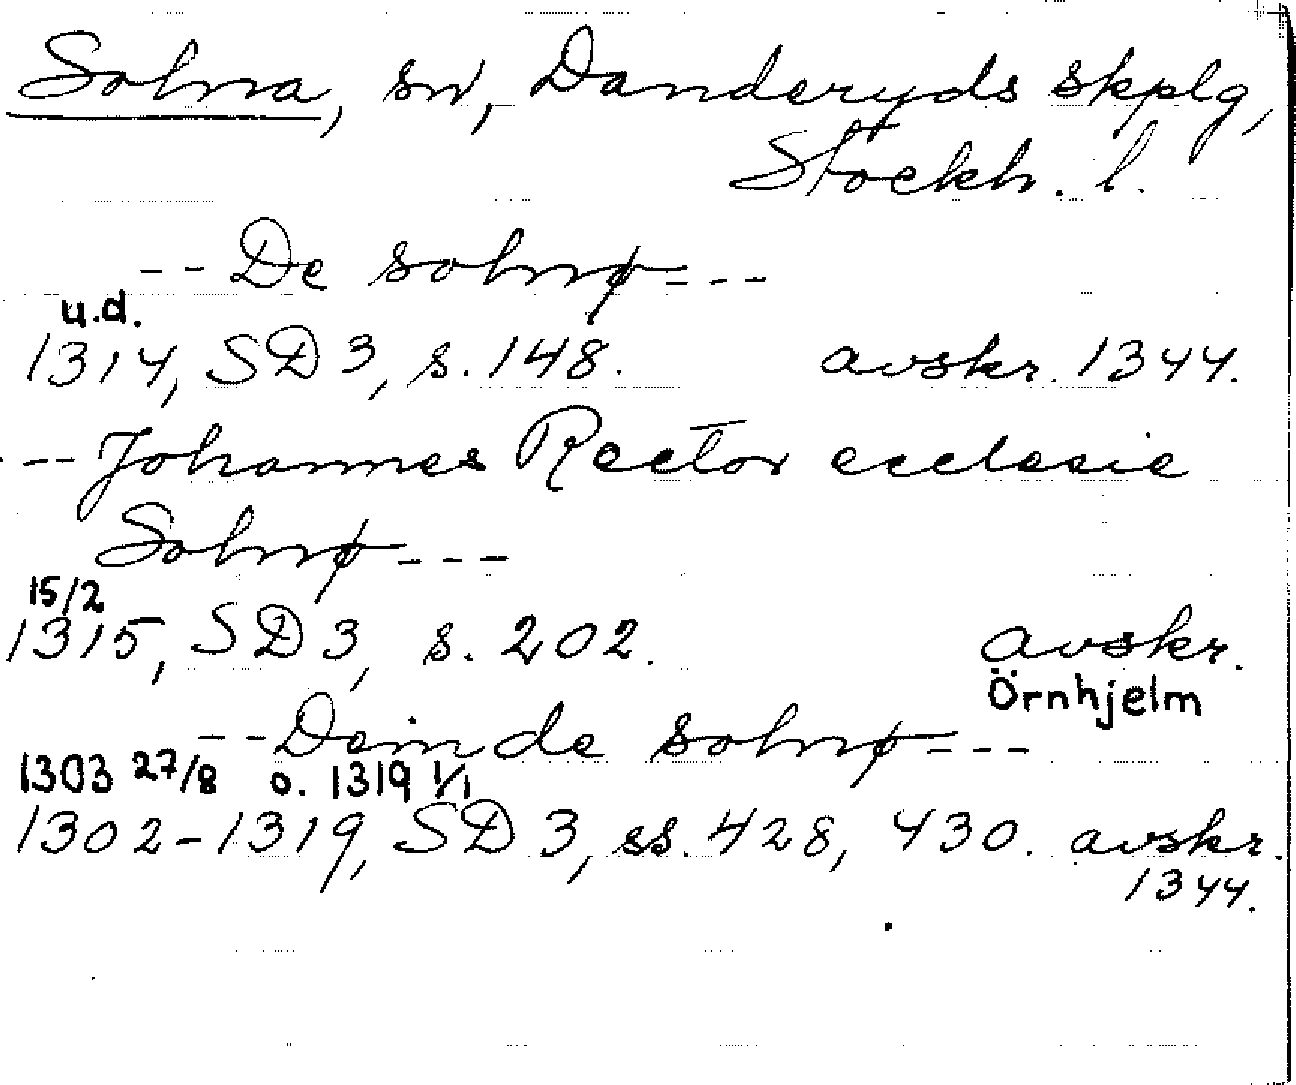 Solna, sn, Danderyds skplg,
Stockh. l.
-- De solnø ---
u.d.
1314, SD 3, s. 148. avskr. 1344.
-- Johannes Rector ecclesie
Solnø ---
15/2
1315, SD 3, s. 202. avskr.
Örnhjelm
-- Deinde solnø ---
1303 27/8 o. 1319 1/1
1302-1319, SD 3, ss. 428, 430. avskr.
1344.